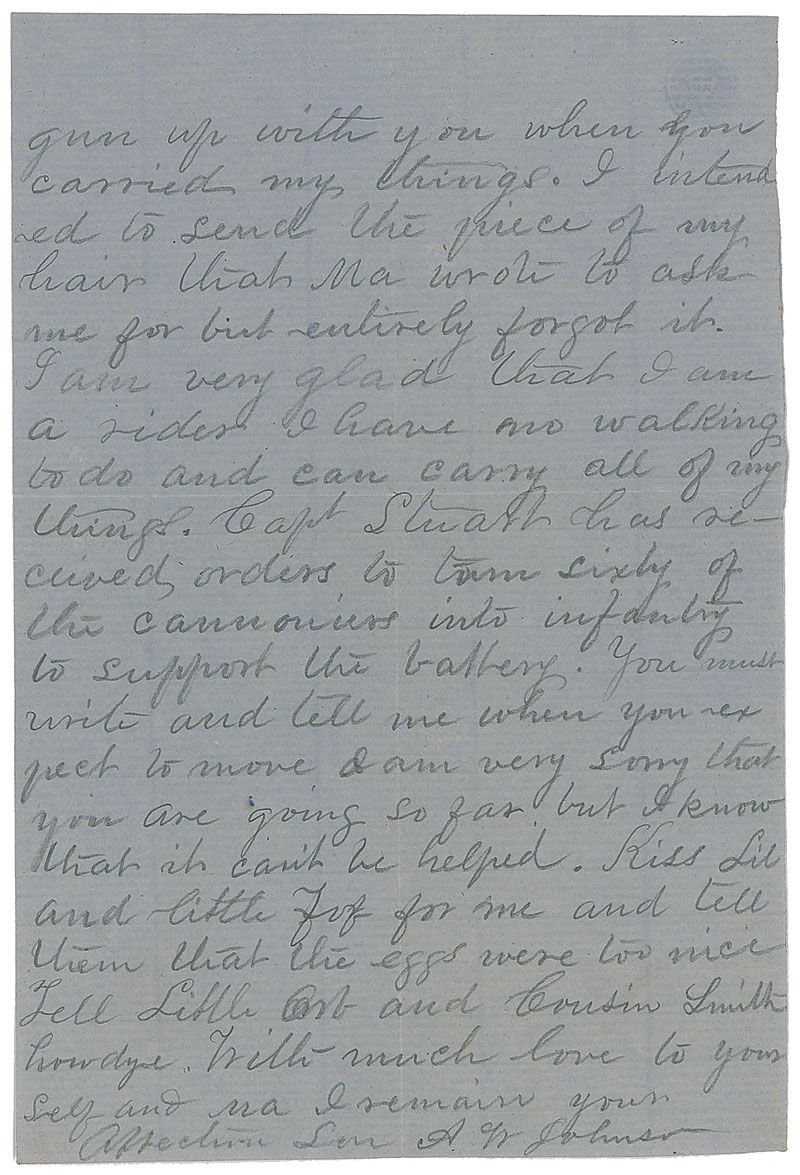 gun up with you when you
carried my things. I intend
ed to send the piece of my
hair that Ma wrote to ask
me for but entirely forgot it.
I am very glad that I am
a rider I have no walking
to do and can carry all of my
things. Capt Stuart has re-
ceived orders to turn sixty of
the cannoniers into infantry
to support the battery. You must
write and tell me when you ex
pect to move I am very sorry that
you are going so far but I know
that it can't be helped. Kiss Lil
and little for me and tell
them that the eggs were too nice
Tell Little and Cousin Smith
howdye. With much love to your
self and Ma I remain your
Affection Son A W Johnson